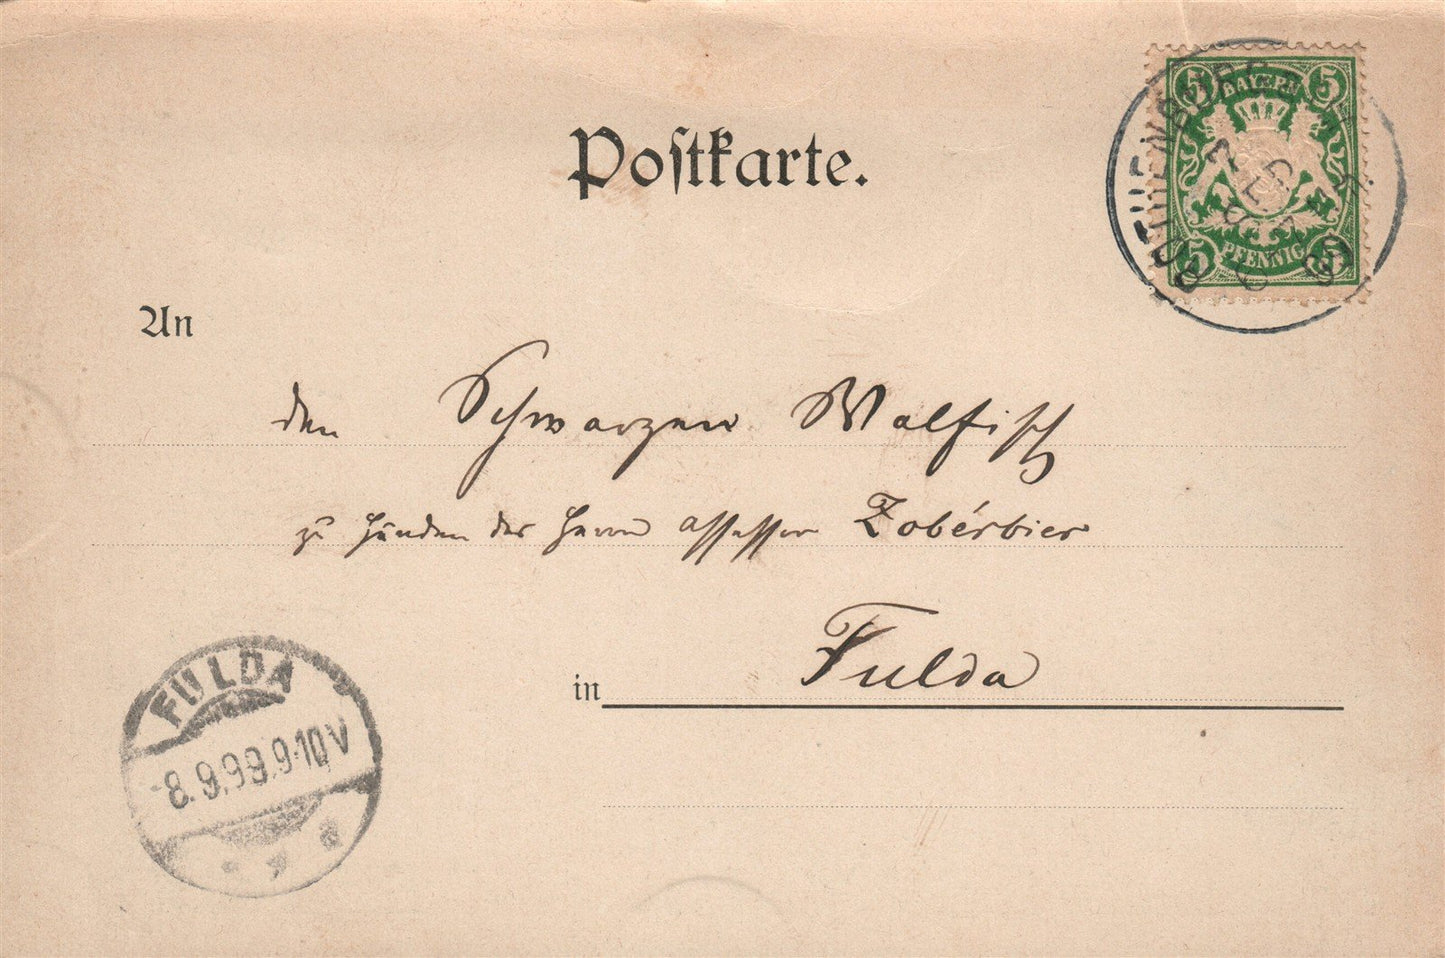 BAYERN
5 5
5 5
PFENNIG
ROTHENBURG
Postkarte.
An
den Schwarzen Walfisch
zu Händen des Herrn Assessor Zobérbier
in Fulda
FULDA
8.9.99.9-10V
* a